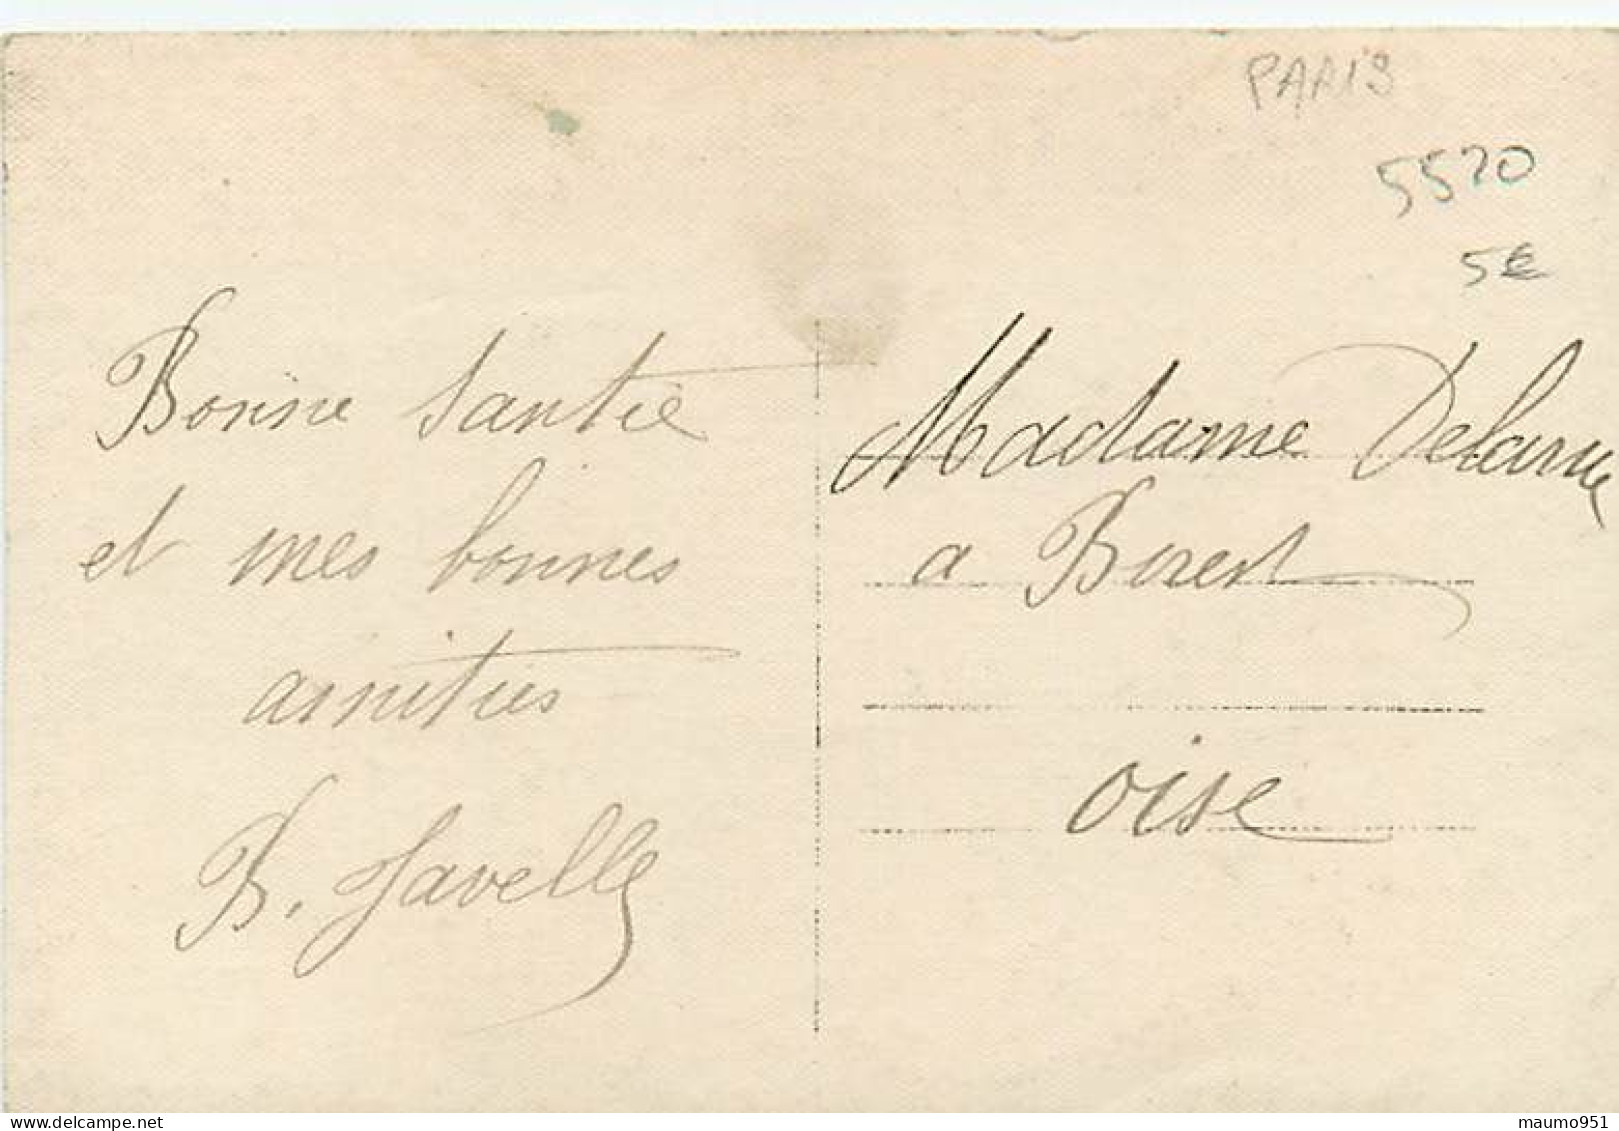 PARIS
5570
5€
Bonne santée
et mes bonnes
amitiés
B. Javelle
Madame Delarue
a Borest
oise
www.delcampe.net
maumo951